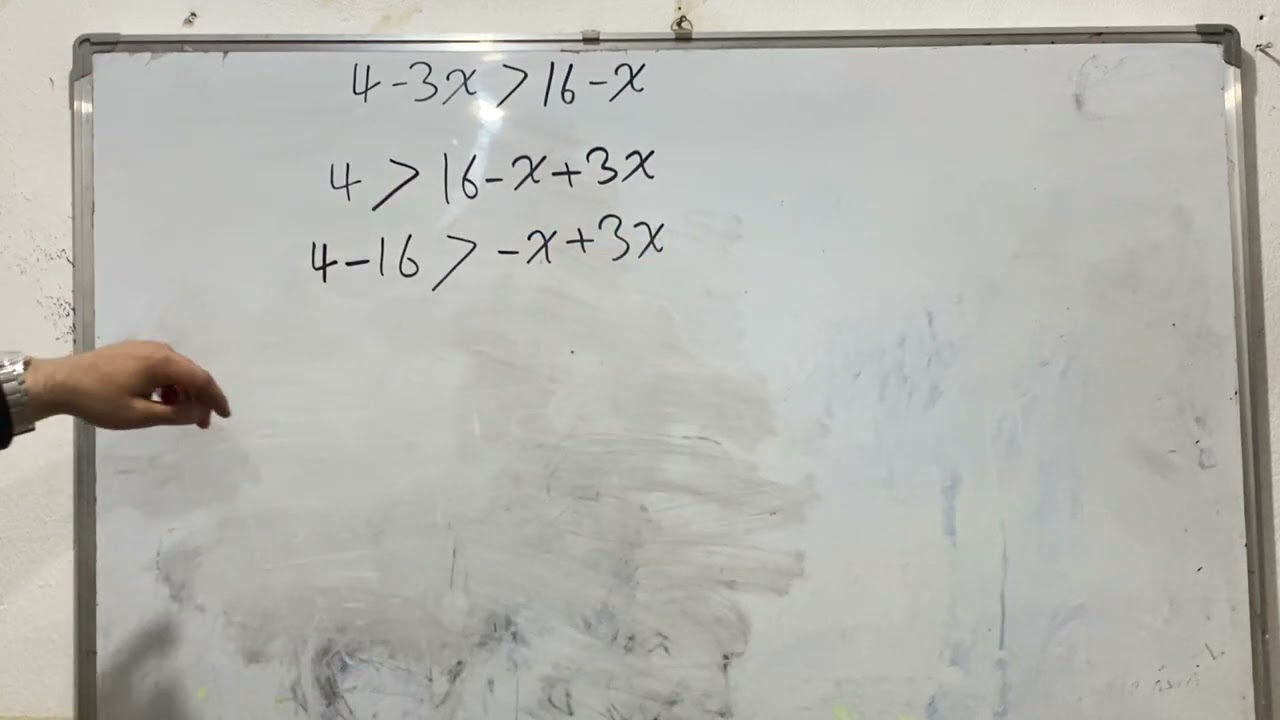 4-3x>16-x
4>16-x+3x
4-16>-x+3x